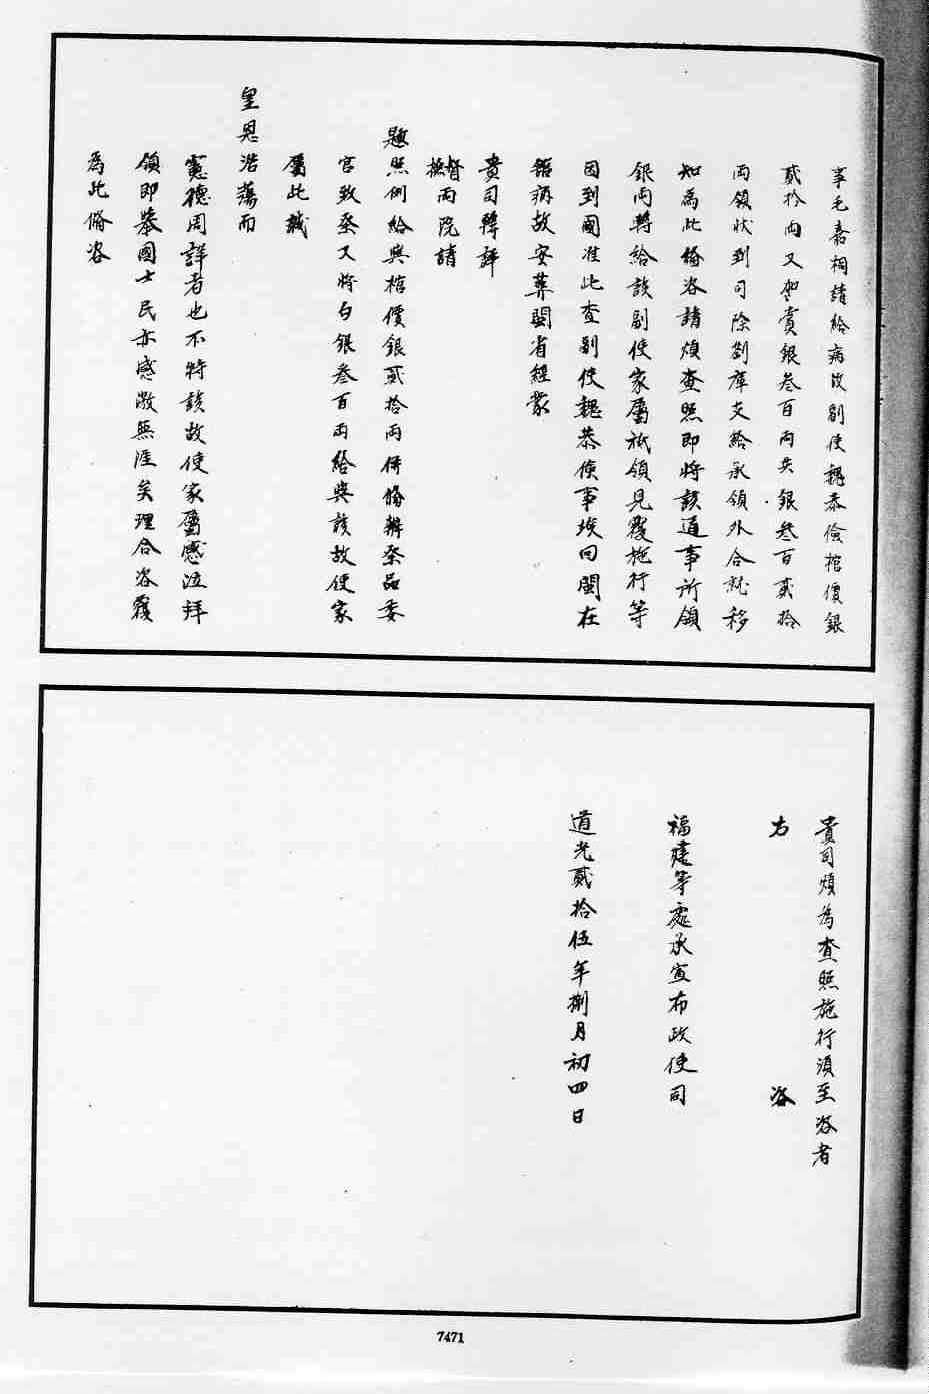 事毛嘉桐請給病故副使魏恭儉棺價銀
貳拾兩又加賞銀叁百兩共銀叁百貳拾
兩領狀到司除劄庫支給承領外合就移
知為此備咨請煩查照即將該通事所領
銀兩轉給該副使家屬祇領見覆施行等
因到國准此查副使魏恭儉事竣回閩在
館病故安葬閩省經蒙
貴司轉詳
督
撫兩院請
題照例給與棺價銀貳拾兩併備辦祭品委
官致祭又將白銀叁百兩給與該故使家
屬此誠
皇恩浩蕩而
憲德周詳者也不特該故使家屬感泣拜
領即舉國士民亦感激無涯矣理合咨覆
為此備咨
貴司煩為查照施行須至咨者
右 咨
福建等處承宣布政使司
道光貳拾伍年捌月初四日
7471